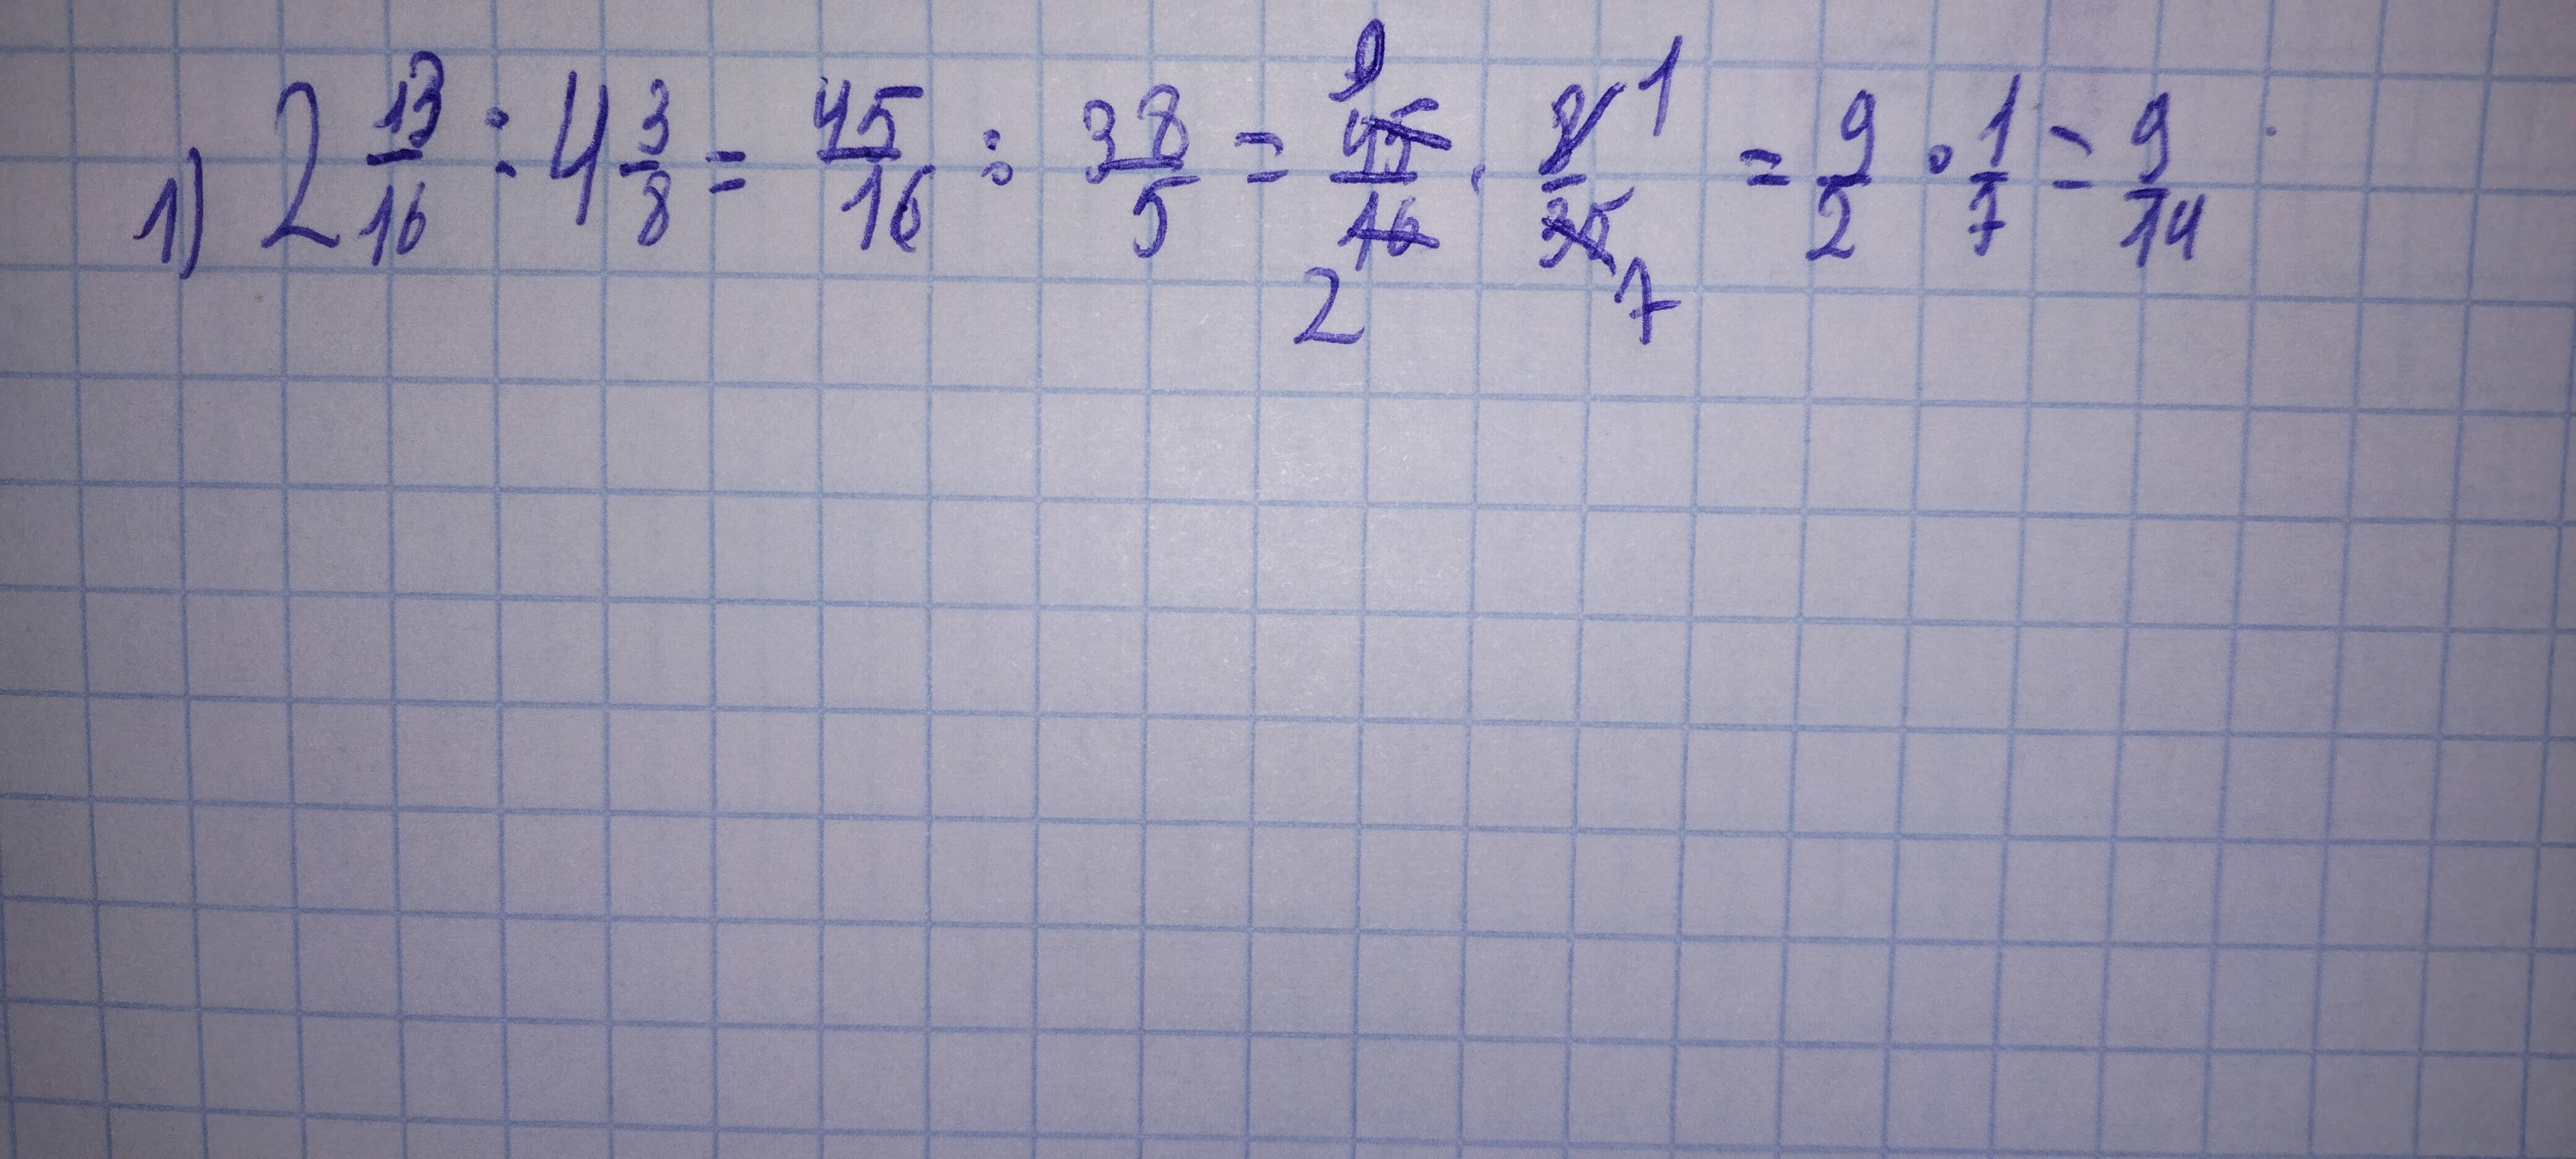 1) 2 13/16 : 4 3/8 = 45/16 : 38/5 = 9 45/16 2 · 8/35 1 7 = 9/2 · 1/7 = 9/14